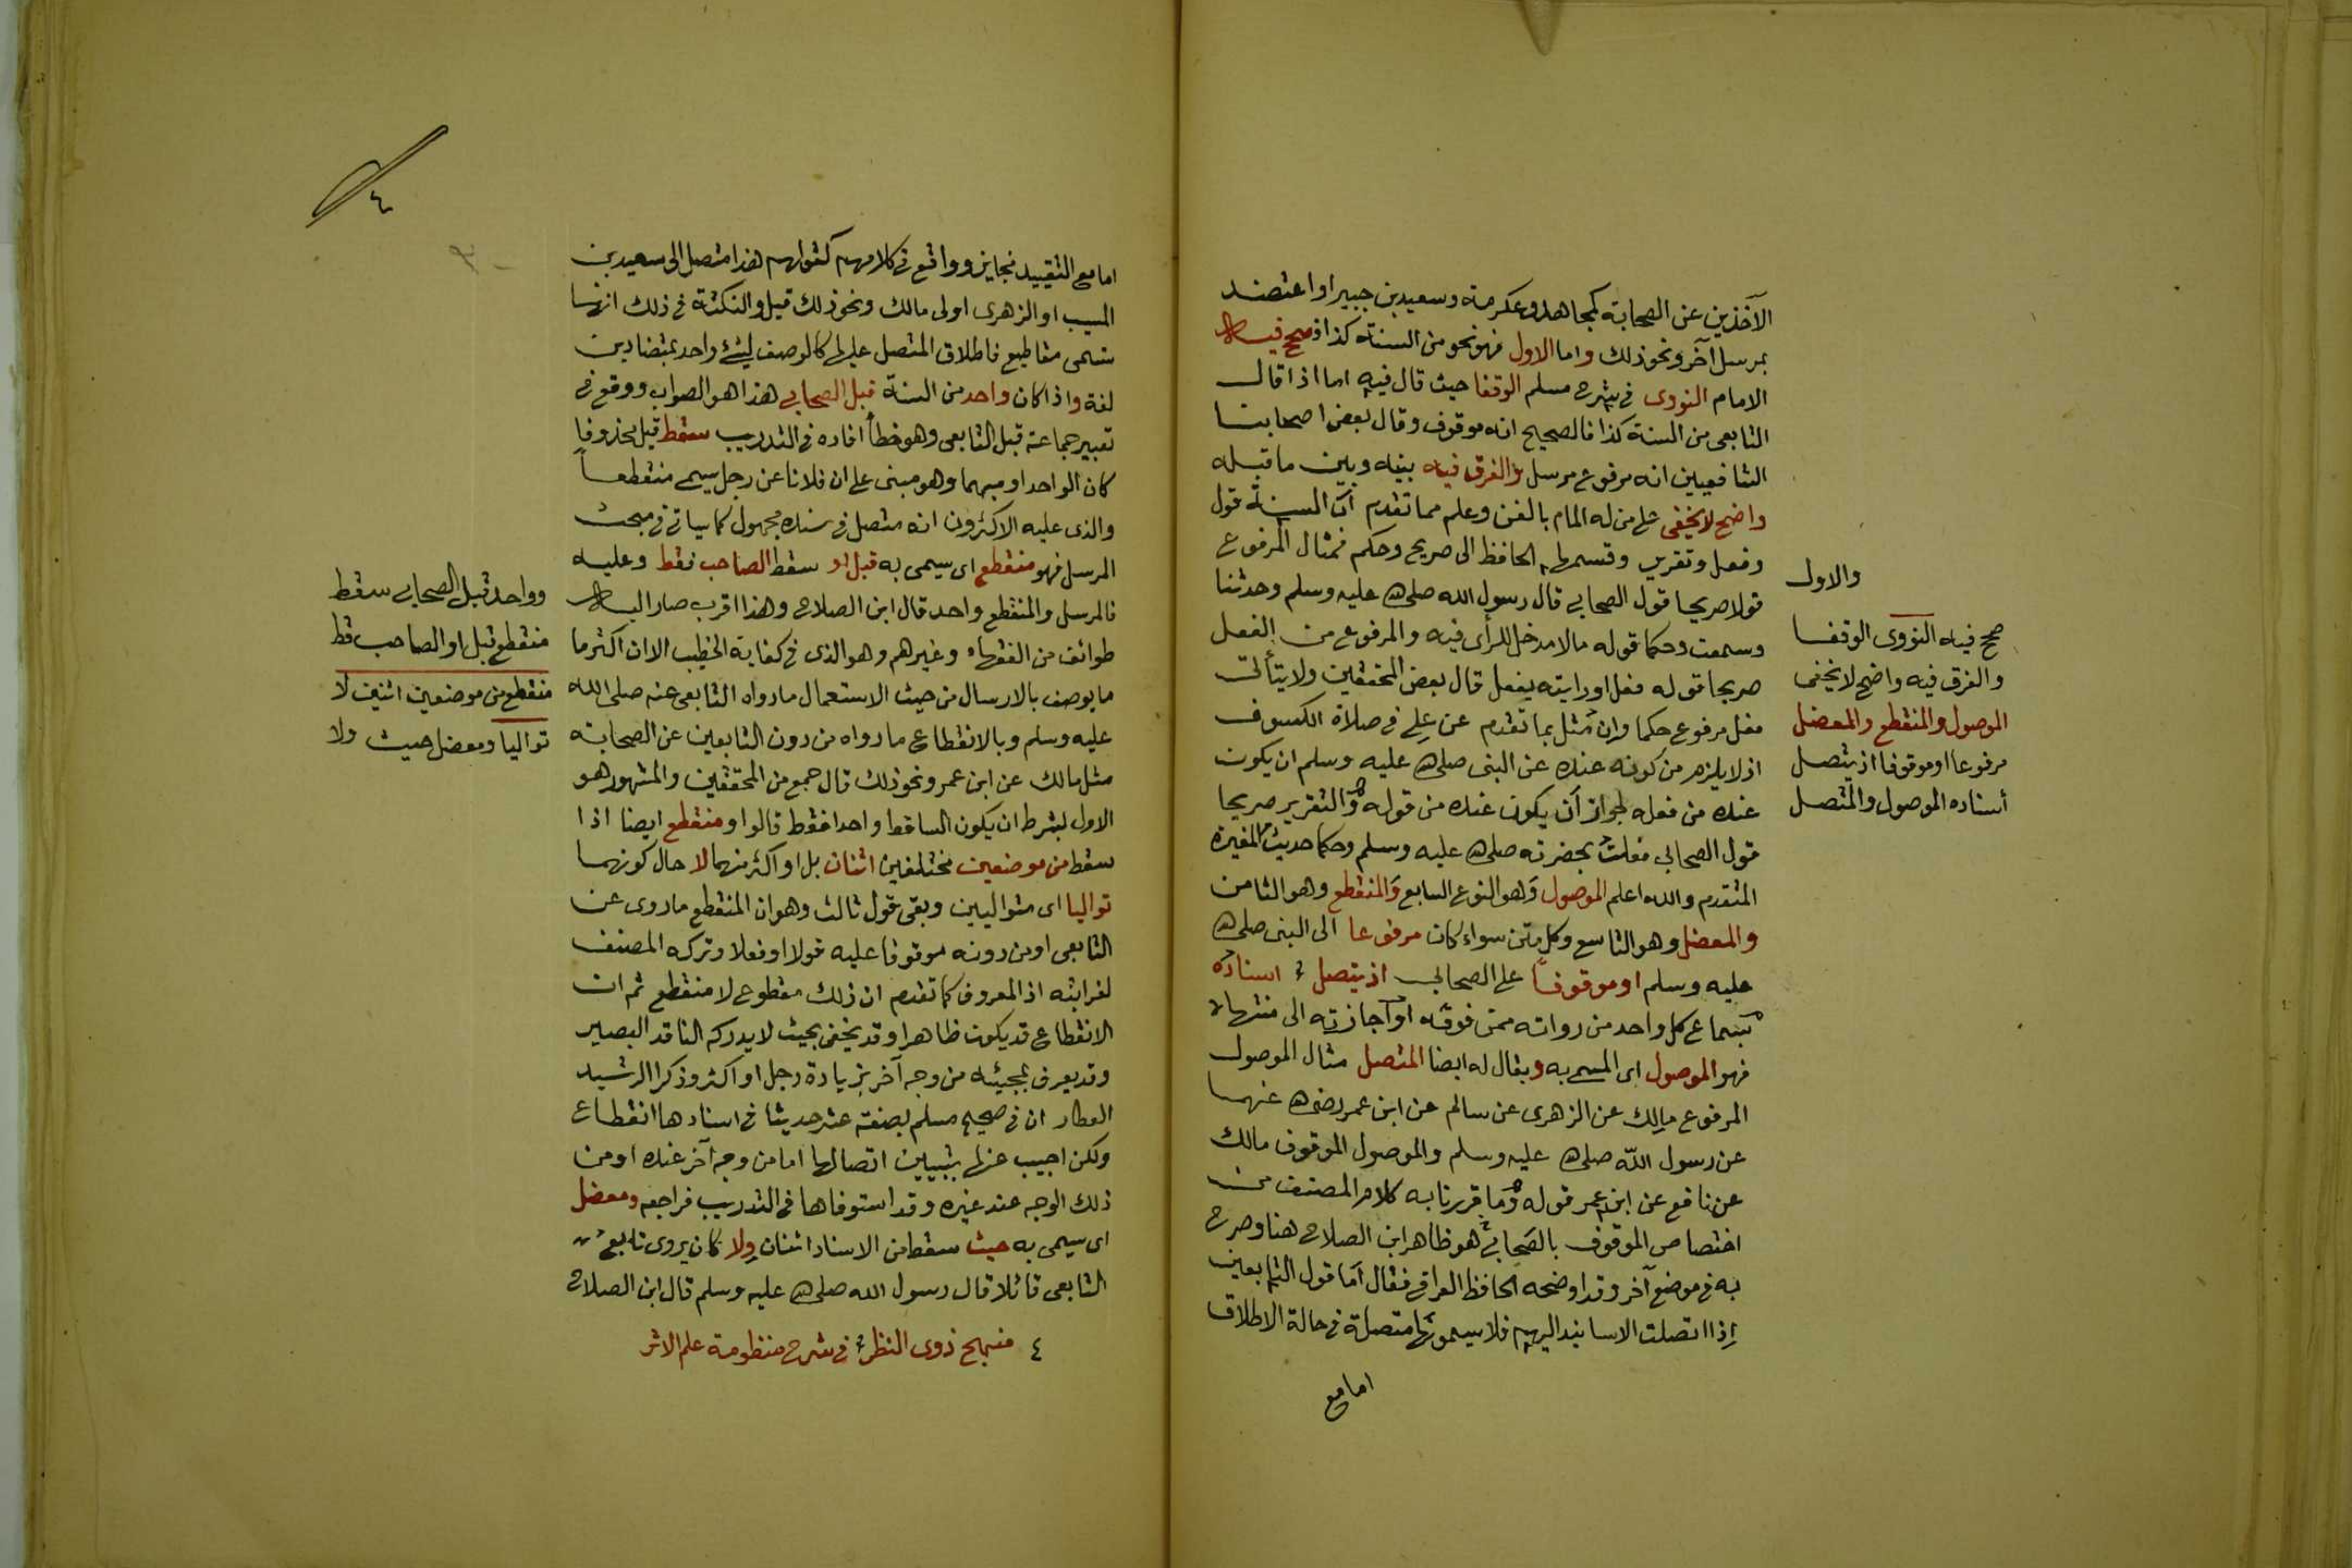 الآخذين عن الصحابة كمجاهد وعكرمة وسعيد بن جبير او اعتضد
بمرسل آخر ونحو ذلك واما الاول فهو نحو من السنة كذا فصحح فيه
الامام النووى فى شرح مسلم الوقفا حيث قال فيه اما اذا قال
التابعى من السنة كذا فالصحيح انه موقوف وقال بعض اصحابنا
الشافعيين انه مرفوع مرسل والفرق فيه بينه وبين ما قبله
واضح لا يخفى على من له المام بالفن وعلم مما تقدم أن السنة قول
وفعل وتقرير وقسمها الحافظ الى صريح وحكم فمثال المرفوع
قولا صريحا قول الصحابى قال رسول الله صلى الله عليه وسلم وحدثنا
وسمعت وحكما قوله ما لا مدخل للرأى فيه والمرفوع من الفعل
صريحا قوله فعل او رايته يفعل قال بعض المحققين ولا يتأتى
فعل مرفوع حكما وان مثل بما تقدم عن على فى صلاة الكسوف
اذ لا يلزم من كونه عنده عن النبى صلى الله عليه وسلم ان يكون
عنده من فعله لجواز أن يكون عنده من قوله والتقرير صريحا
قول الصحابى فعلت بحضرته صلى الله عليه وسلم وحكما حديث المغيرة
المتقدم والله اعلم الموصول وهو النوع السابع والمنقطع وهو الثامن
والمعضل وهو التاسع وكل متن سواء كان مرفوعا الى النبى صلى الله
عليه وسلم او موقوفا على الصحابى اذ يتصل اسناده
بسماع كل واحد من رواته ممن فوقه او اجازته الى منتهاه
فهو الموصول اى المسمى به ويقال له ايضا المتصل مثال الموصول
المرفوع مالك عن الزهرى عن سالم عن ابن عمر رضى الله عنهما
عن رسول الله صلى الله عليه وسلم والموصول الموقوف مالك
عن نافع عن ابن عمر قوله وما قررنا به كلام المصنف من
اختصاص الموقوف بالصحابى هو ظاهر ابن الصلاح هنا وصرح
به فى موضع آخر وقد اوضحه الحافظ العراقى فقال أما قول التابعين
إذا اتصلت الاسانيد اليهم فلا يسمونها متصلة فى حالة الاطلاق
اما مع
والاول
صحح فيه النووى الوقفا
والفرق فيه واضح لا يخفى
الموصول والمنقطع والمعضل
مرفوعا او موقوفا اذ يتصل
أسناده الموصول والمتصل
٤
اما مع التقييد فجايز وواقع فى كلامهم كقولهم هذا متصل الى سعيد بن
المسيب او الزهرى او لى مالك ونحو ذلك قيل والنكتة فى ذلك انها
تسمى مقاطيع فاطلاق المتصل عليها كالوصف لشئ واحد بمتضادين
لغة واذا كان واحد من السنة قبل الصحابى هذا هو الصواب ووقع فى
تعبير جماعة قبل التابعى وهو خطأ افاده فى التدريب سقط قيل محذوفا
كان الواحد او مبهما وهو مبنى على ان فلانا عن رجل يسمى منقطعاً
والذى عليه الاكثرون انه متصل فى سنده مجهول كما سياتى فى مبحث
المرسل فهو منقطع اى يسمى به قبل او سقط الصاحب فقط وعليه
فالمرسل والمنقطع واحد قال ابن الصلاح وهذا اقرب صار اليه
طوائف من الفقهاء وغيرهم وهو الذى فى كفاية الخطيب الا ان اكثر ما
ما يوصف بالارسال من حيث الاستعمال ما رواه التابعى عنه صلى الله
عليه وسلم وبالانقطاع ما رواه من دون التابعين عن الصحابة
مثل مالك عن ابن عمر ونحو ذلك قال جمع من المحققين والمشهور هو
الاول بشرط ان يكون الساقط واحدا فقط قالوا ومنقطع ايضا اذا
سقط من موضعين مختلفين اثنان بل او اكثر منهما لا حال كونهما
تواليا اى متواليين وبقى قول ثالث وهو ان المنقطع ما روى عن
التابعى او من دونه موقوفا عليه قولا او فعلا وتركه المصنف
لغرابته اذ المعروف كما تقدم ان ذلك مقطوع لا منقطع ثم ان
الانقطاع قد يكون ظاهرا وقد يخفى بحيث لا يدركه الناقد البصير
وقد يعرف بمجيئه من وجه آخر بزيادة رجل او اكثر وذكر الرشيد
العطار ان فى صحيح مسلم بضعة عشر حديثا فى اسنادها انقطاع
ولكن اجيب عنها بتبيين اتصالها اما من وجه آخر عنده او من
ذلك الوجه عند غيره وقد استوفاها فى التدريب فراجعه ومعضل
اى يسمى به حيث سقط من الاسناد اثنان ولا كان يروى تابع
التابعى قائلا قال رسول الله صلى الله عليه وسلم قال ابن الصلاح
٤ منهج ذوى النظر فى شرح منظومة علم الاثر
وواحد قبل الصحابى سقط
منقطع قبل او الصاحب قط
منقطع من موضعين اثنين لا
تواليا ومعضل حيث ولا